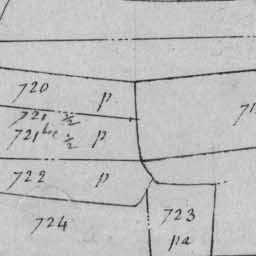 720 p
721 ½
721 bis ½ p
722 p
724
723
pa